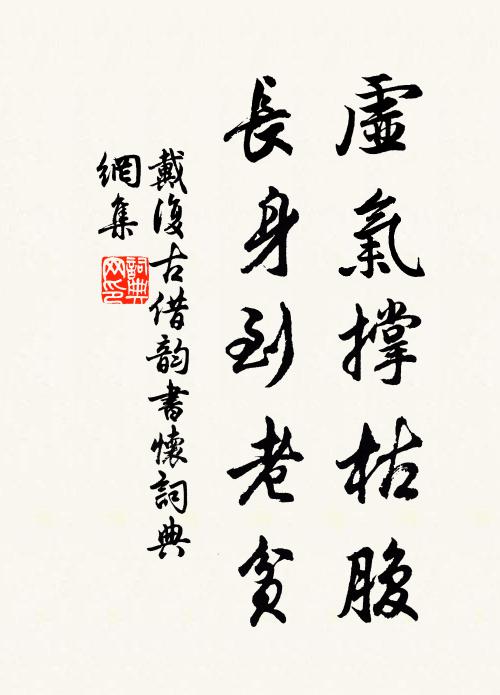 虛氣撐枯腹
長身到老貧
戴復古借韵書懷詞典
網集
詞典
网印